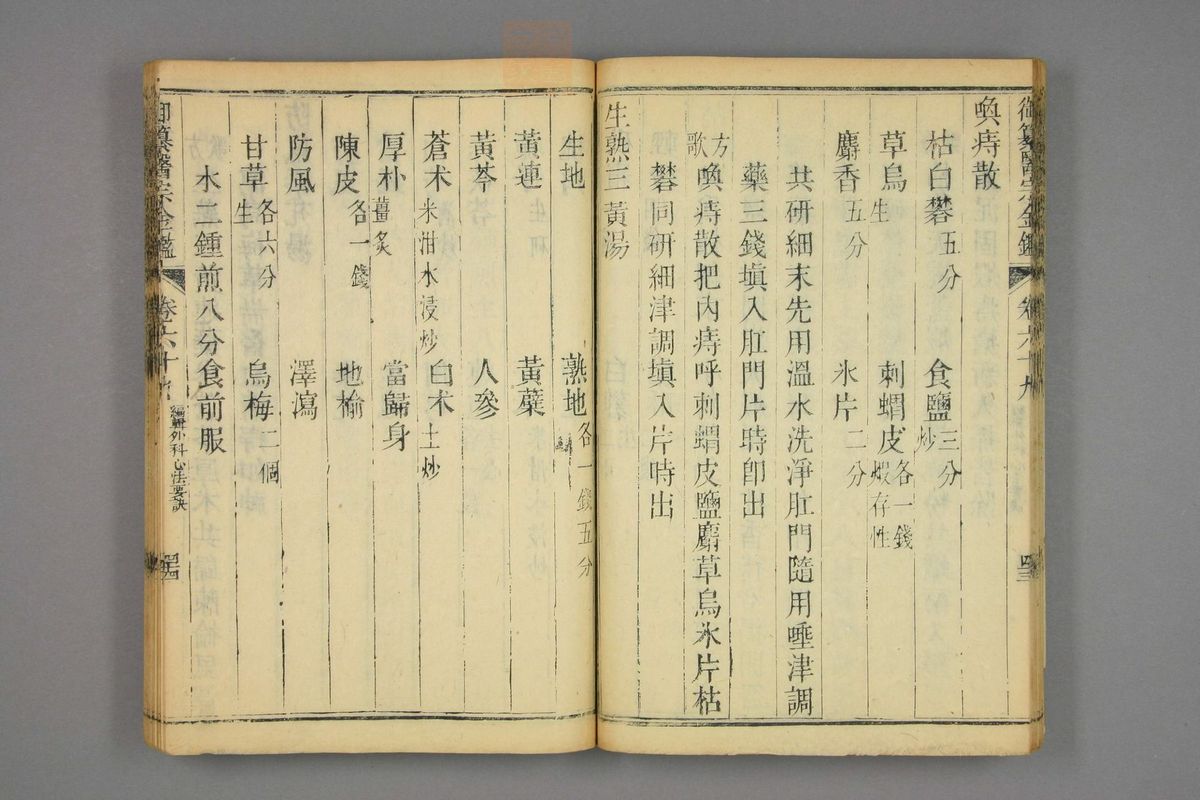 御纂醫宗金鑑 卷六十九 四三
喚痔散
枯白礬五分 食鹽炒三分
草烏生 刺蝟皮各一錢煆存性
麝香五分 氷片二分
共研細末先用溫水洗淨肛門隨用唾津調
藥三錢填入肛門片時即出
方歌 喚痔散把內痔呼刺蝟皮鹽麝草烏氷片枯
礬同研細津調填入片時出
生熟三黃湯
生地 熟地各一錢五分
黃連 黃蘗
黃芩 人參
蒼术米泔水浸炒 白术土炒
厚朴薑炙 當歸身
陳皮各一錢 地榆
防風 澤瀉
甘草生各六分 烏梅二個
水二鍾煎八分食前服
御纂醫宗金鑑 卷六十 編輯外科心法要訣 四四